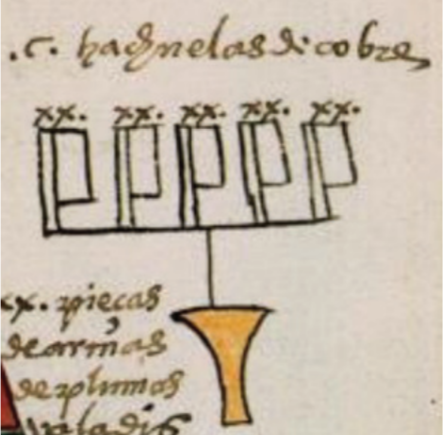 .c. hachuelas de cobre
xx. xx. xx. xx. xx.
xx. pieças
de armas
de plumas